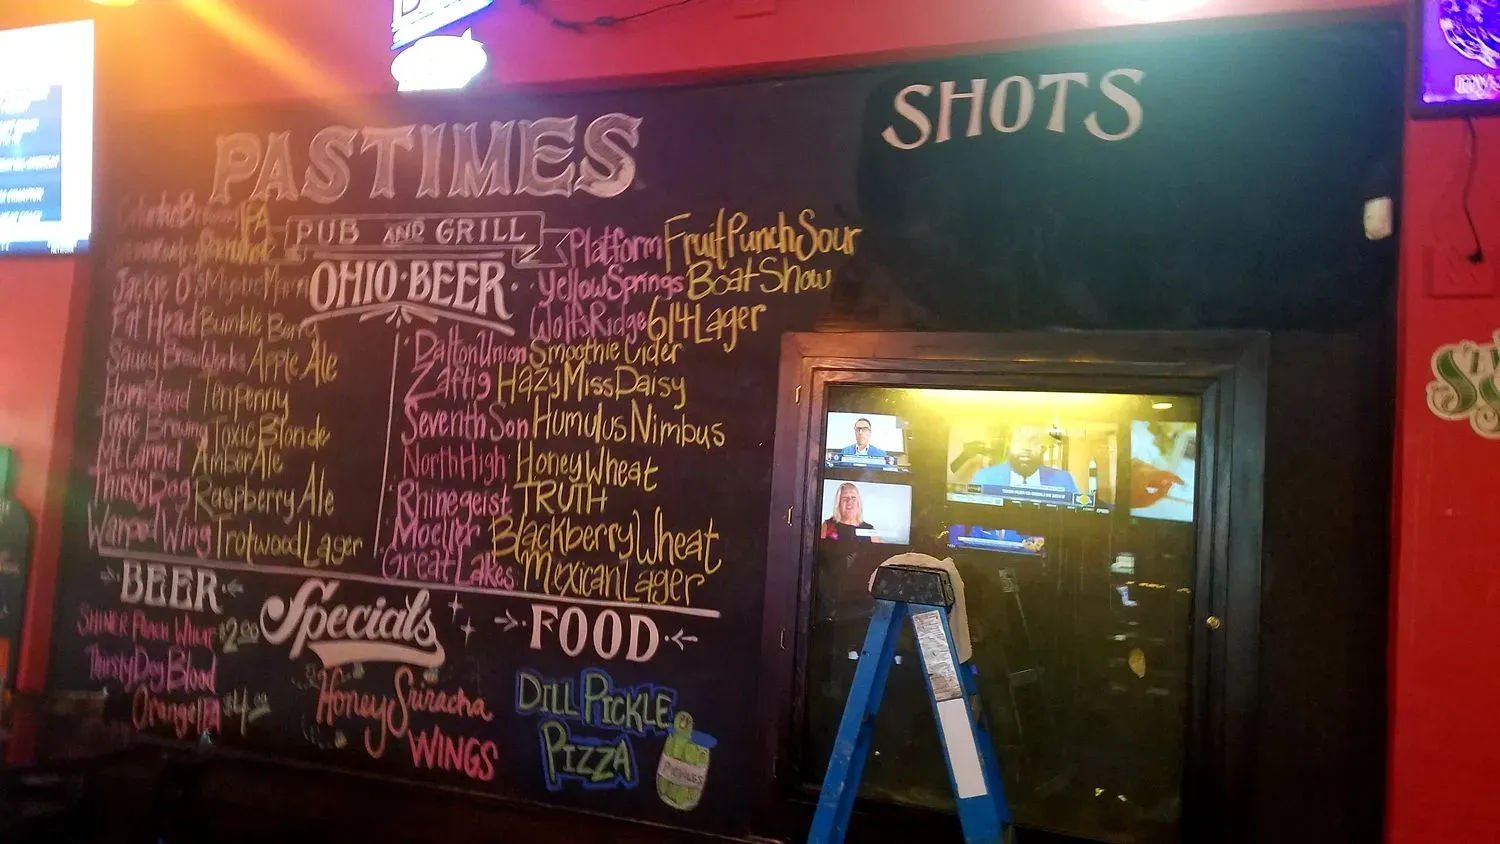 SHOTS
PASTIMES
PUB AND GRILL
OHIO·BEER
Columbus Brewing IPA
Jackie O's Mystic Mama
Fat Head Bumble Berry
Saucy BrewWorks Apple Ale
HomeStead Tenpenny
Toxic Brewing Toxic Blonde
Amber Ale
Thirsty Dog Raspberry Ale
Warped Wing Trotwood Lager
Platform Fruit Punch Sour
Yellow Springs Boat Show
Wolfs Ridge 614 Lager
Dalton Union Smoothie Cider
Zaftig Hazy Miss Daisy
Seventh Son Humulus Nimbus
North High Honey Wheat
Rhinegeist TRUTH
Moeller Blackberry Wheat
Great Lakes Mexican Lager
BEER
SHINER PEACH WHEAT $2.00
Thirsty Dog Blood
Orange IPA $4.00
Specials
Honey Sriracha
WINGS
FOOD
DILL PICKLE
PIZZA
PICKLES